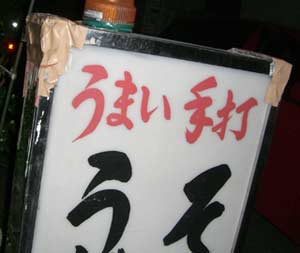 うまい手打
う そ